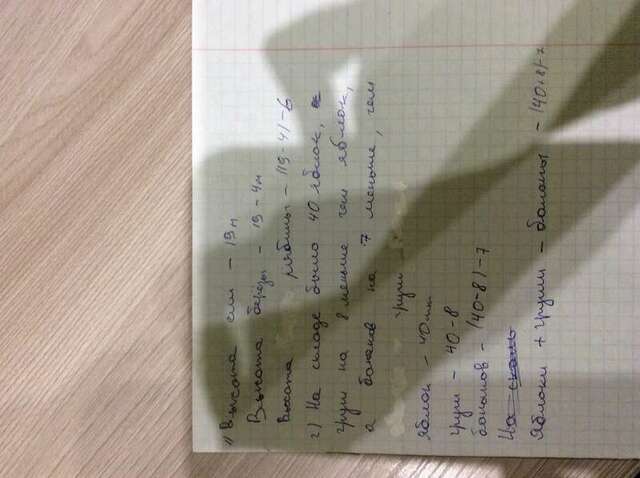 1) Высота ели - 19 м
Высота берёзы - 19 - 4 м
Высота рябины - (19-4)-6
2) На складе было 40 яблок,
груш на 8 меньше чем яблок,
а бананов на 7 меньше, чем
груш
яблок - 40 шт
груш - 40-8
бананов - (40-8)-7
На
Яблоки + груши - бананы - (40+8)-7